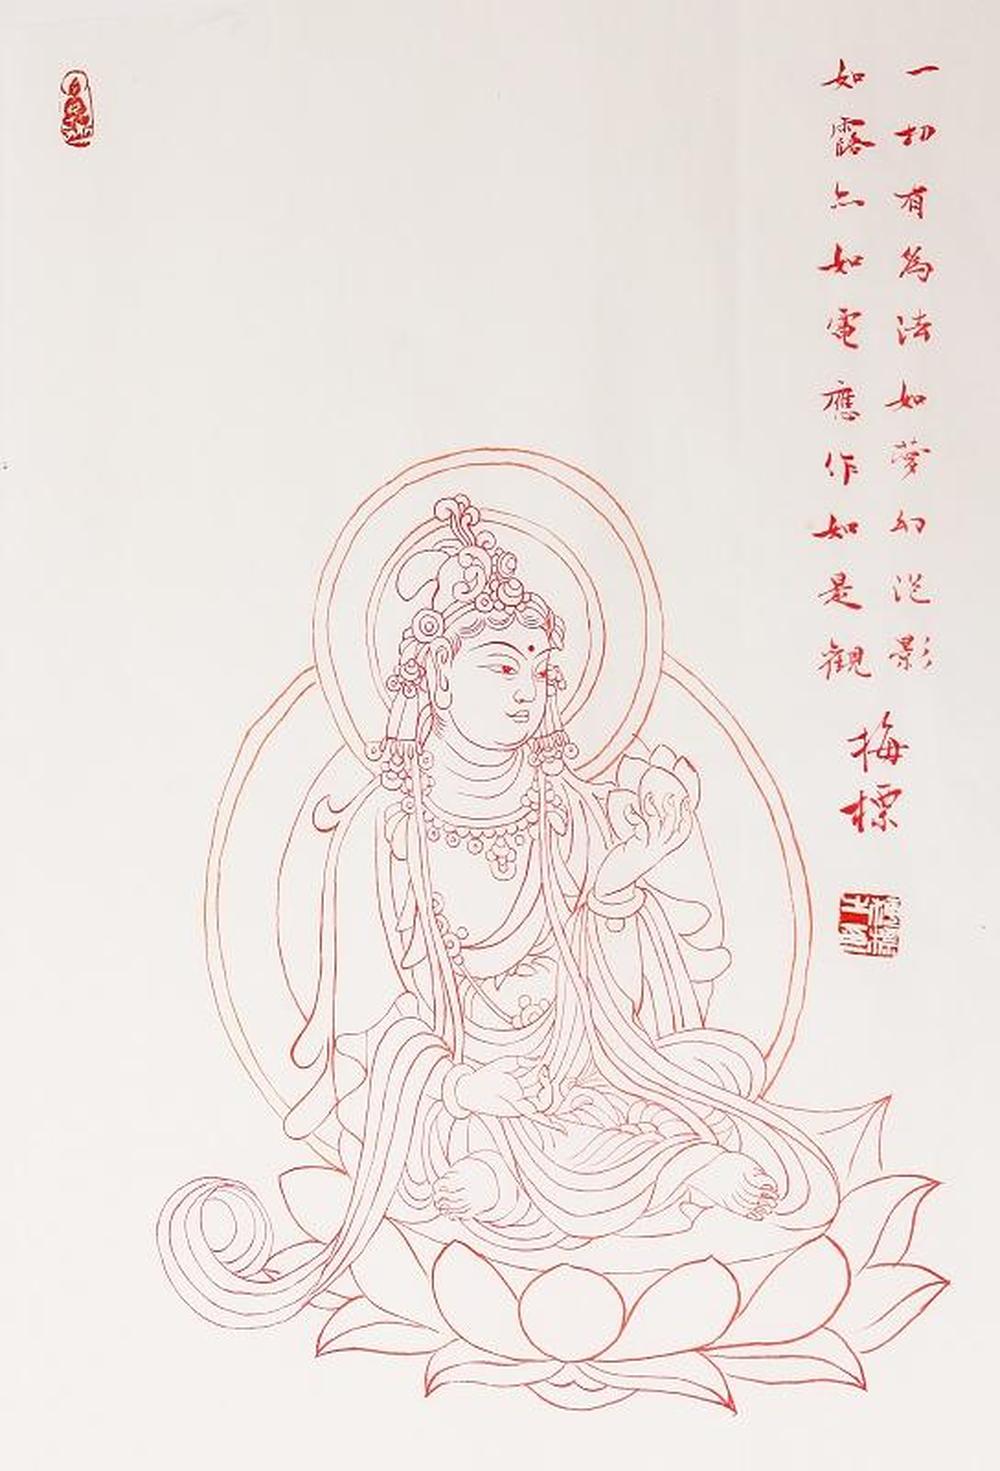 一切有為法如夢幻泡影
如露亦如電應作如是観
梅標